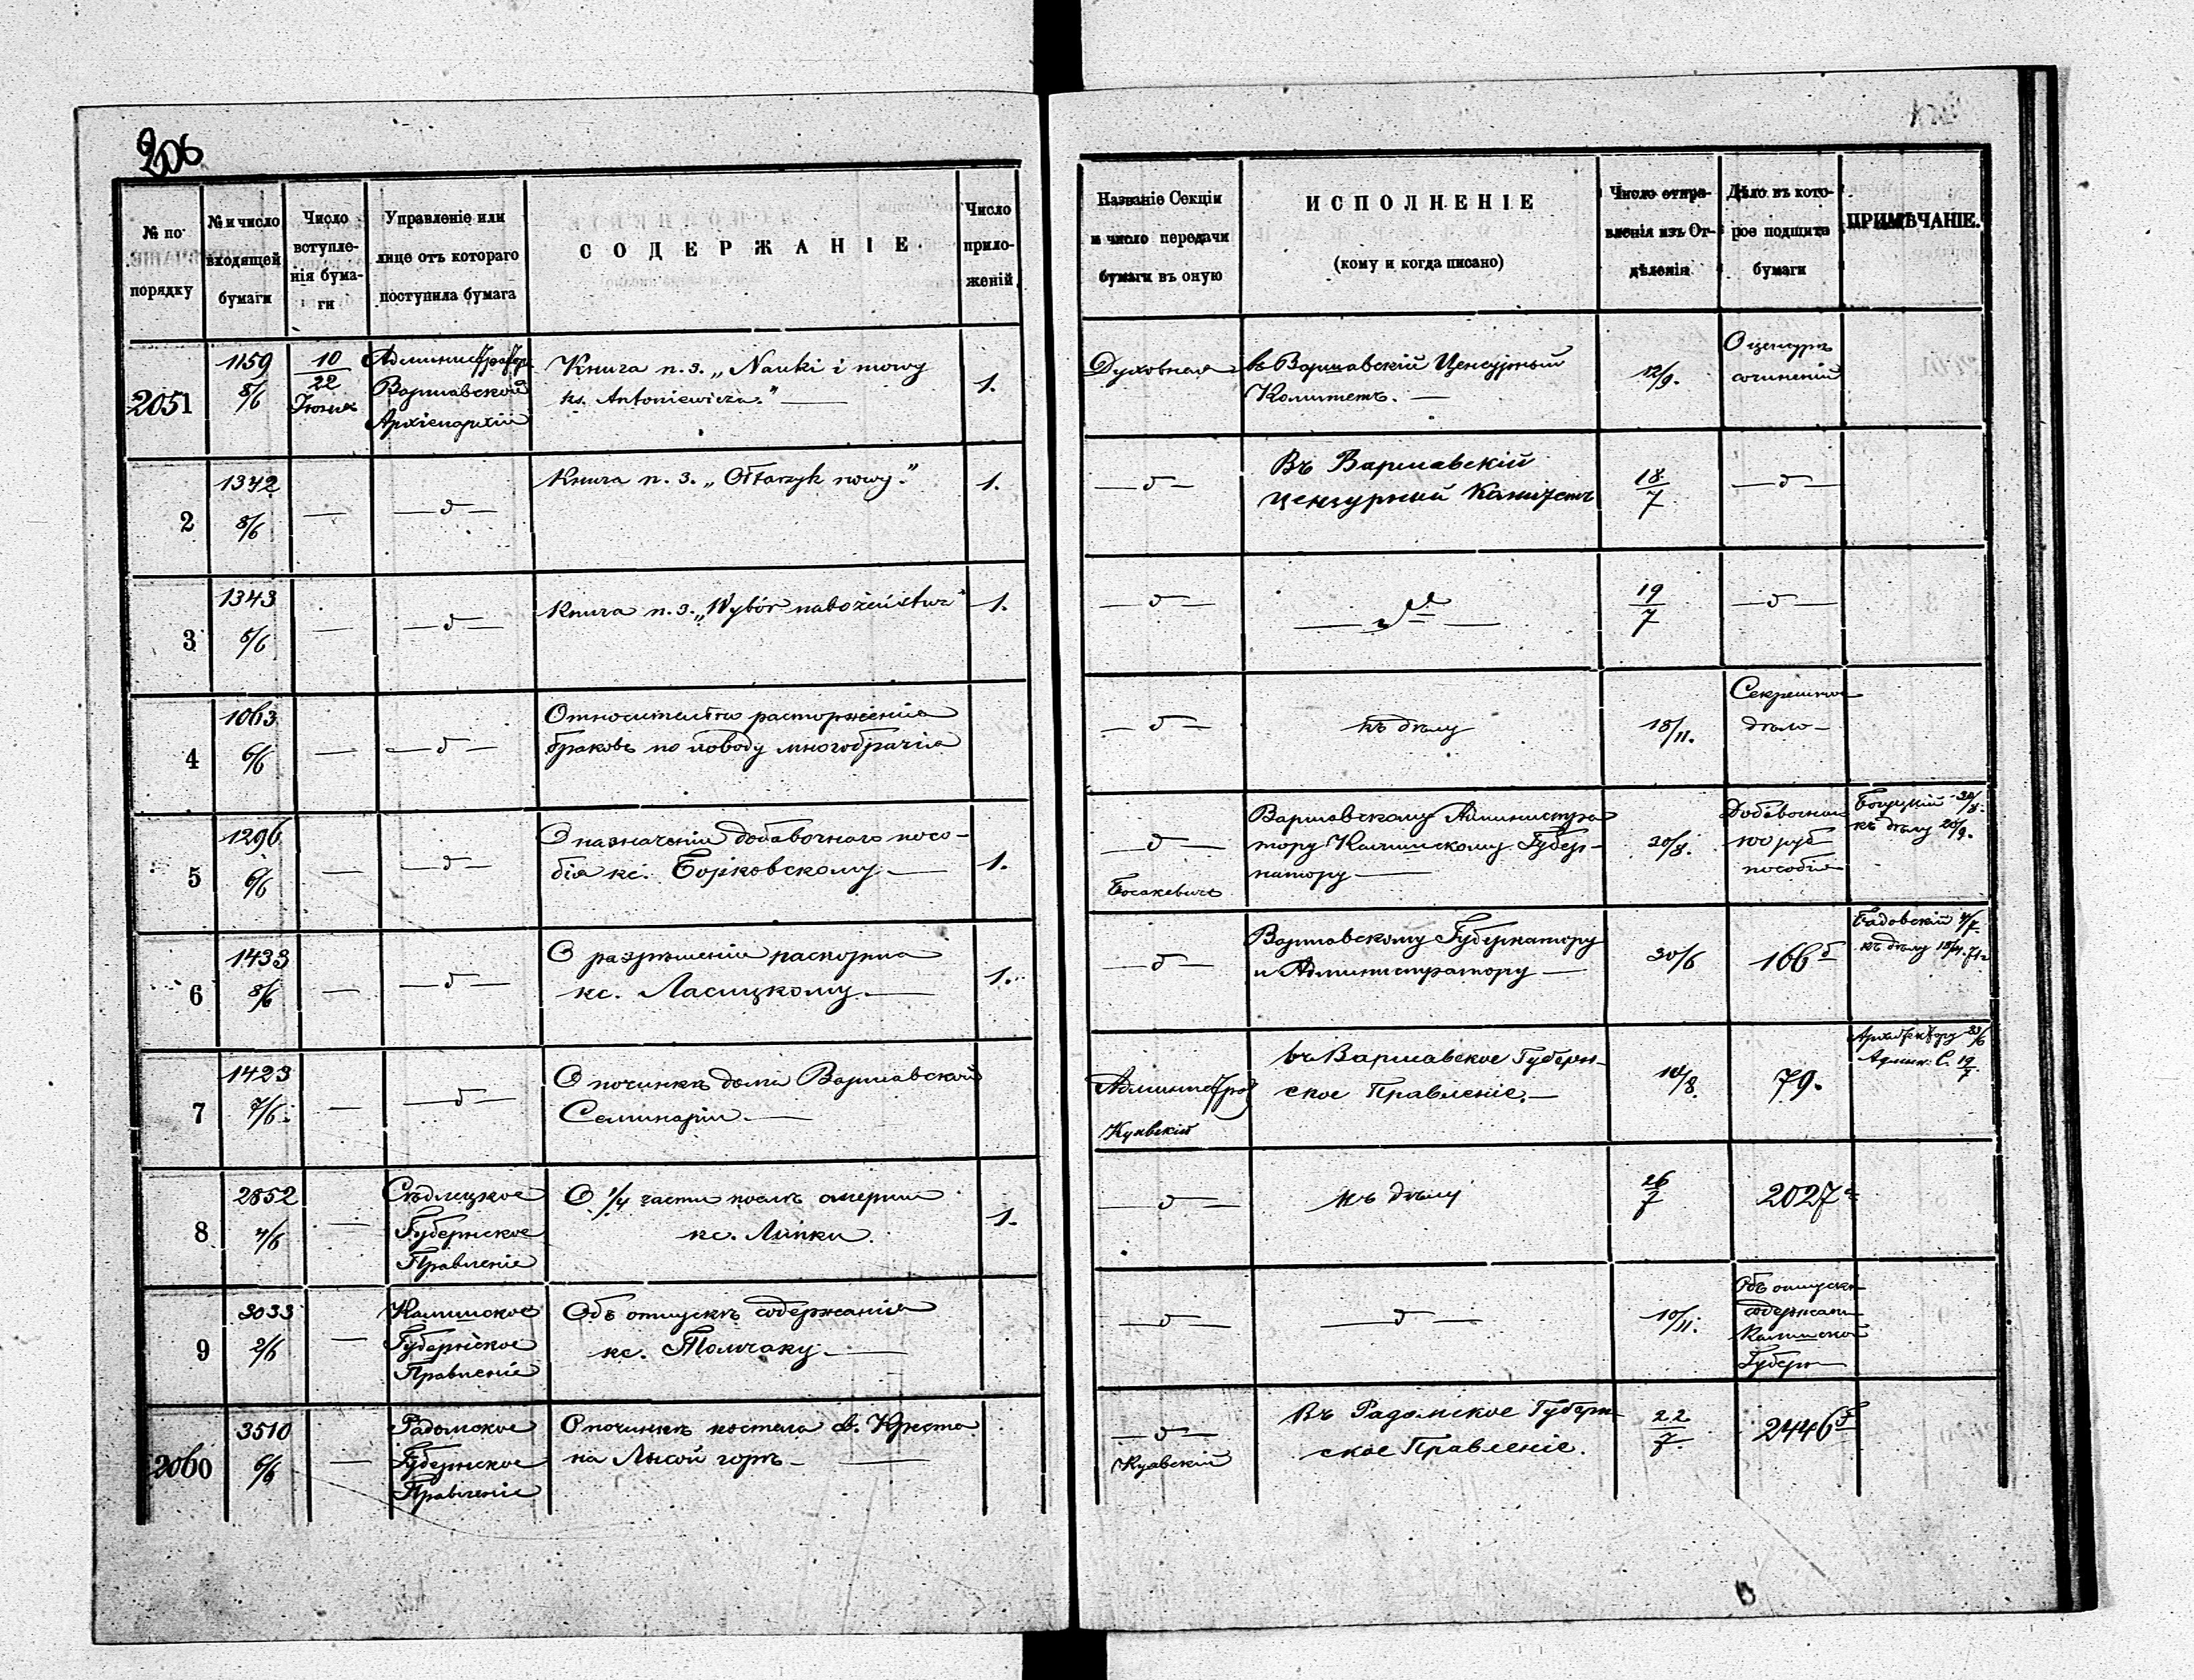 206
№ по порядку
№ и число входящей бумаги
Число вступленія бумаги
Управленіе или лице отъ котораго поступила бумага
СОДЕРЖАНІЕ
Число приложеній
Названіе Секціи и число передачи бумаги въ оную
ИСПОЛНЕНІЕ
(кому и когда писано)
Число отправленія изъ Отдѣленія
Дѣло въ которое подшита бумаги
ПРИМѢЧАНІЕ.
2051
1159
8/6
10
22
Іюня
Администраторъ
Варшавской
Архіепархіи
Книга п. з. „Nauki i mowy
ks. Antoniewicza."
1.
Духовная
въ Варшавскій Ценсурный
Комитетъ.
12/9.
О цензурѣ
сочиненій
2
1342
8/6
— д —
Книга п. з. „Ołtarzyk nowy."
1.
— д —
Въ Варшавскій
Цензурный Комитетъ
18
7
— д —
3
1343
8/6
— д —
Книга п. з. „Wybór nabożeństwa"
1.
— д —
19
7
— д —
4
1063
6/6
— д —
Относительно расторженія
браковъ по поводу многобрачія
— д —
къ дѣлу
18/11.
Секретное
дѣло
5
1296
6/6
— д —
О назначеніи добавочнаго посо-
бія кс. Борковскому
1.
— д —
Босакевичъ
Варшавскому Администра
тору Калишскому Губер-
натору
20/8.
Добавочныя
пособія
къ дѣлу 20/9.
6
1433
8/6
— д —
О разрѣшеніи паспорта
кс. Ласицкому
1.
— д —
Варшавскому Губернатору
и Администратору
30/6
166 б
Бадовскій 4/7
къ дѣлу
7
1423
7/6.
— д —
О починкѣ дома Варшавской
Семинаріи
Администрат
Куявскій
въ Варшавское Губерн-
ское Правленіе.
10/8.
79.
Архитектору 23/6
Админ. С. 19/7
8
2852
4/6
Сѣдлецкое
Губернское
Правленіе
О 1/4 части послѣ смерти
кс. Липки
1.
— д —
къ дѣлу
26
7
2027
9
3033
2/6
Калишское
Губернское
Правленіе
Объ отпускѣ содержанія
кс. Томчаку
— д —
— д —
10/11.
Объ отпускѣ
содержан
Калишской
Губерн
2060
3510
6/6
Радомское
Губернское
Правленіе
О починкѣ костела св. Креста
на Лысой горѣ
— д —
Куявскій
Въ Радомское Губерн-
ское Правленіе.
22
7.
2446